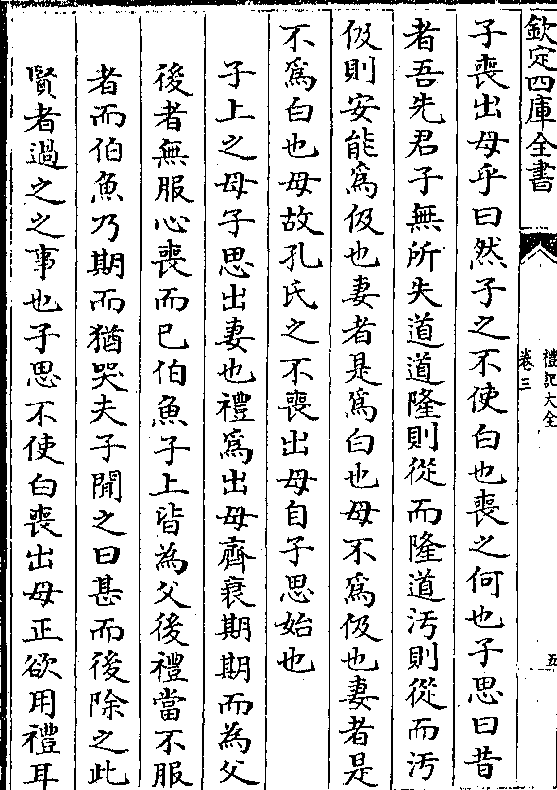 欽定四庫全書
禮記大全
卷三
五
子喪出母乎曰然子之不使白也喪之何也子思曰昔
者吾先君子無所失道道隆則從而隆道汚則從而汚
伋則安能爲伋也妻者是爲白也母不爲伋也妻者是
不爲白也母故孔氏之不喪出母自子思始也
子上之母子思出妻也禮爲出母齊衰期期而為父
後者無服心喪而已伯魚子上皆為父後禮當不服
者而伯魚乃期而猶哭夫子聞之曰甚而後除之此
賢者過之之事也子思不使白喪出母正欲用禮耳